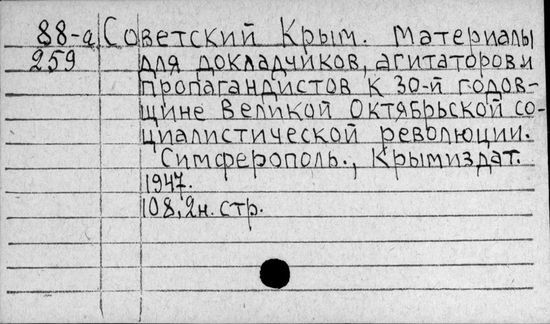 88-а Советский Крым. Материалы
259 для докладчиков, агитаторов и
пропагандистов к 30-й годов-
щине Великой Октябрьской со-
циалистической революции.
Симферополь., Крымиздат.
1947.
108, 2н. стр.